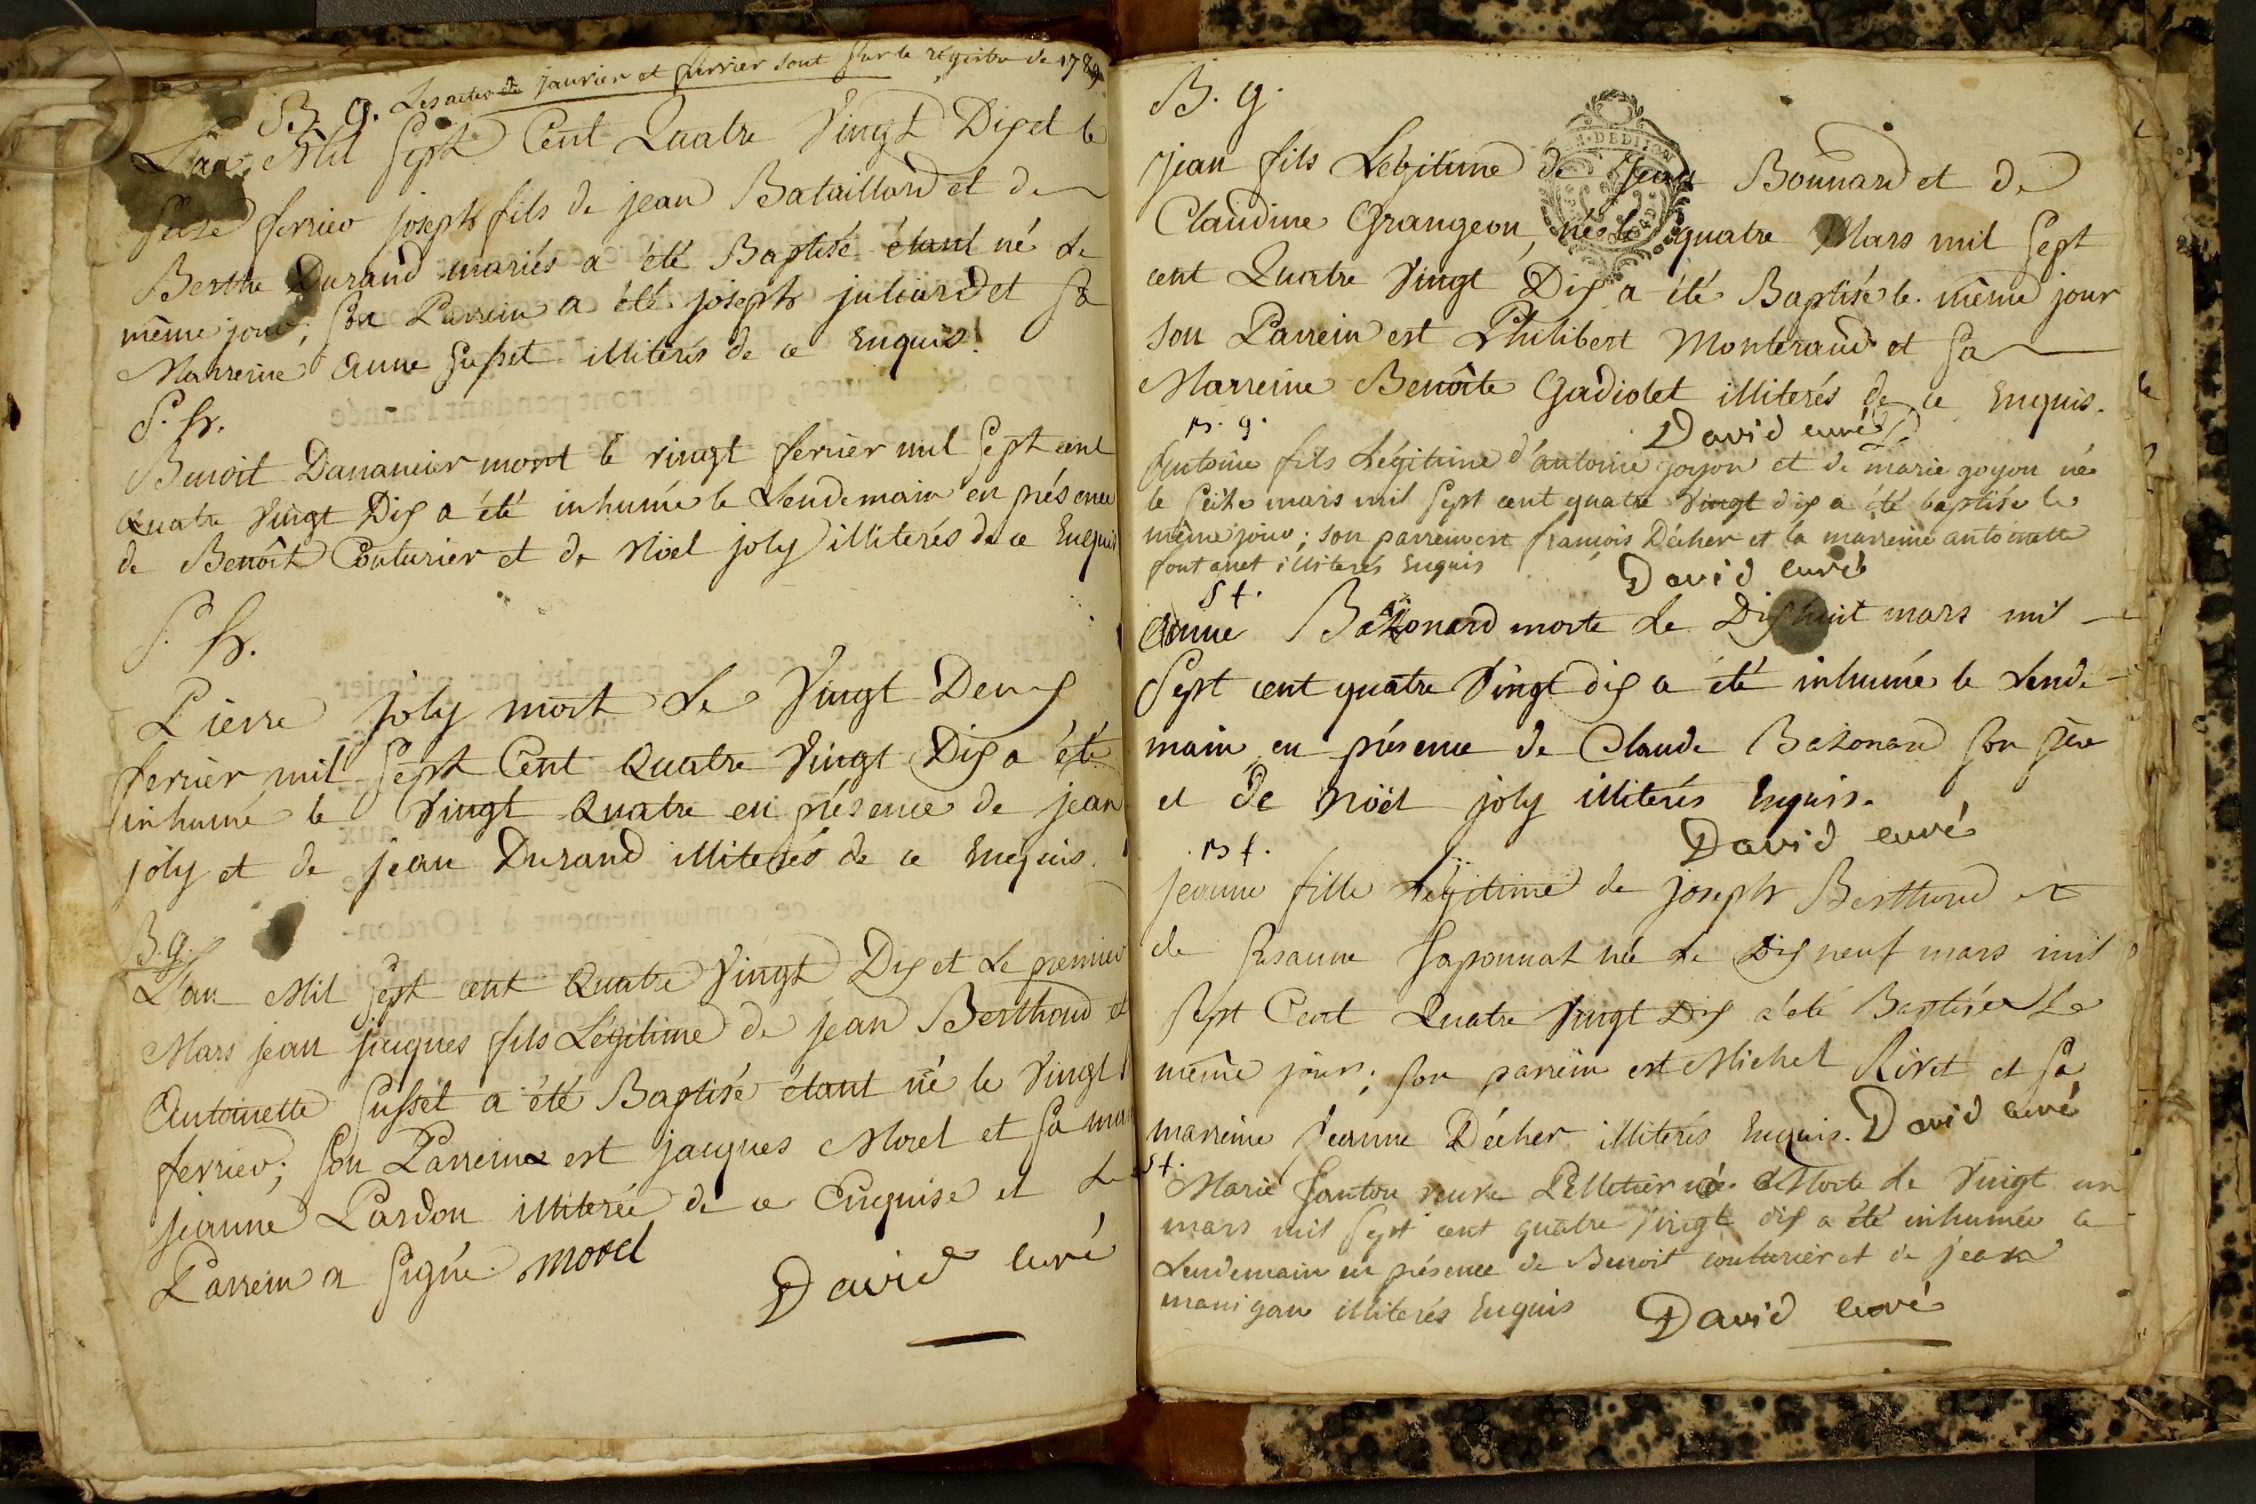 Les actes de janvier et fevrier sont sur le registre de 1789
B. g.
L'an Mil Sept Cent Quatre Vingt Dix et le
Seize fevrier joseph fils de jean Bataillard et de
Berthe Durand mariés a été Baptisé étant né le
même jour; son Parrein a été joseph juliard et sa
Marreine anne Sufset illiterés de ce Enquis.
S. hr.
Benoit Danancier mort le vingt fevrier mil sept cent
Quatre Vingt Dix a été inhumé le Lendemain en présence
de Benoît Couturier et de Nöel joly illiterés de ce Enquis
S. hr.
Pierre joly mort le Vingt Deux
fevrier mil Sept Cent Quatre Vingt Dix a été
inhumé le Vingt Quatre en présence de jean
joly et de jean Durand illiterés de ce Enequis.
B. g.
L'an Mil Sept cent Quatre Vingt Dix et Le premier
Mars jean jacques fils Légitime de jean Berthoud et
Antoinette Sufset a été Baptisé étant né le Vingt
fevrier; son Parrein est jacques Morel et sa mar
jeanne Pardon illiterée de ce Enquise et Le
Parrein a signé. morel
David curé
B. g.
jean fils Légitime de Jean Bonnard et de
Claudine Grangeon, né le quatre Mars mil Sept
cent Quatre Vingt Dix a été Baptisé le même jour
son Parrein est Philibert Monteraud et sa
Marreine Benoîte Gadiolet illiterés de ce Enquis.
David curé
B. g.
Antoine fils Légitime d'antoine goyon et de marie goyon né
le seize mars mil sept cent quatre vingt dix a été baptisé le
même jour; son parrein est françois Décher et la marreine antoinette
fontanet illiterés Enquis
David curé
S f.
Anne Bazonard morte le Dix huit mars mil
Sept cent quatre Vingt dix a été inhumée le Lende
main en présence de Claude Bazonard son père
et de nöel joly illiterés Enquis.
David curé
B f.
jeanne fille Légitime de joseph Berthoud et
de Susanne Saponnat née le Dix neuf mars mil
Sept Cent Quatre Vingt Dix a été Baptisée Le
même jour; son parrein est Michel Rivet et sa
marreine jeanne Décher illiterés Enquis. David curé
S f.
Marie Santon veuve Pelletier Morte le Vingt un
mars mil sept cent quatre Vingt dix a été inhumée le
Lendemain en présence de Benoit couturier et de jean
manigan illiterés Enquis
David curé